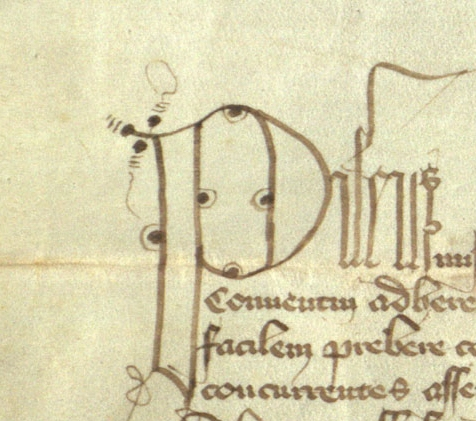 Pileus
Conuentui adhere
facilem prebere
concurrentes asse